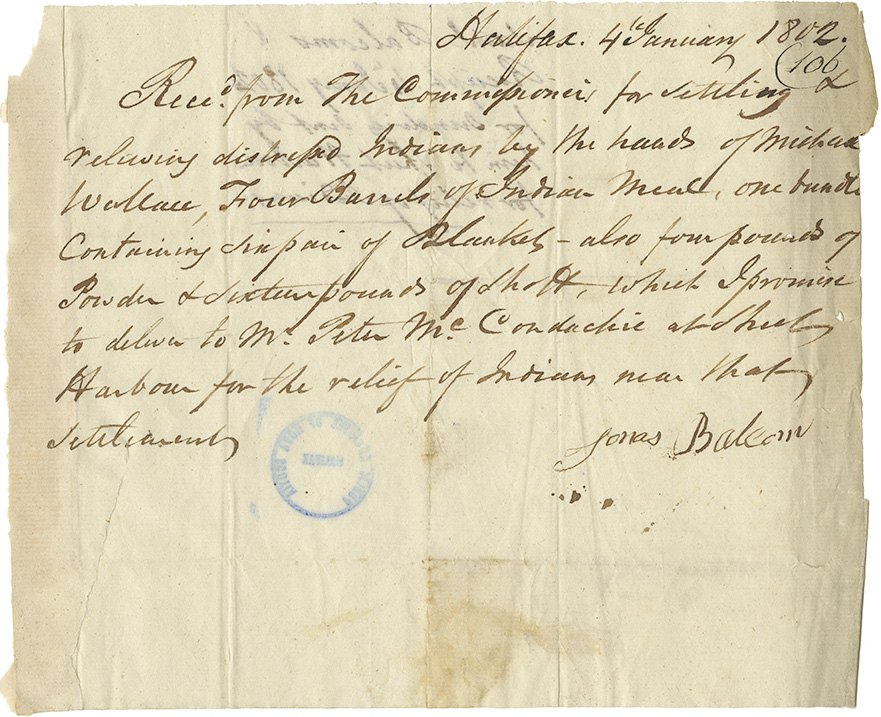 Halifax. 4th January 1802.
106
Recd. from The Commissioners for Settling &
relieving distressd Indians by the hands of Michael
Wallace, Four Barrels of Indian Meal, one bundle
Containing Six pair of Blankets - also four pounds of
Powder & Sixteen pounds of Shott, which I promise
to deliver to Mr. Peter Mc Condachie at Sheet
Harbour for the relief of Indians near that
Settlement
Jonas Balcom